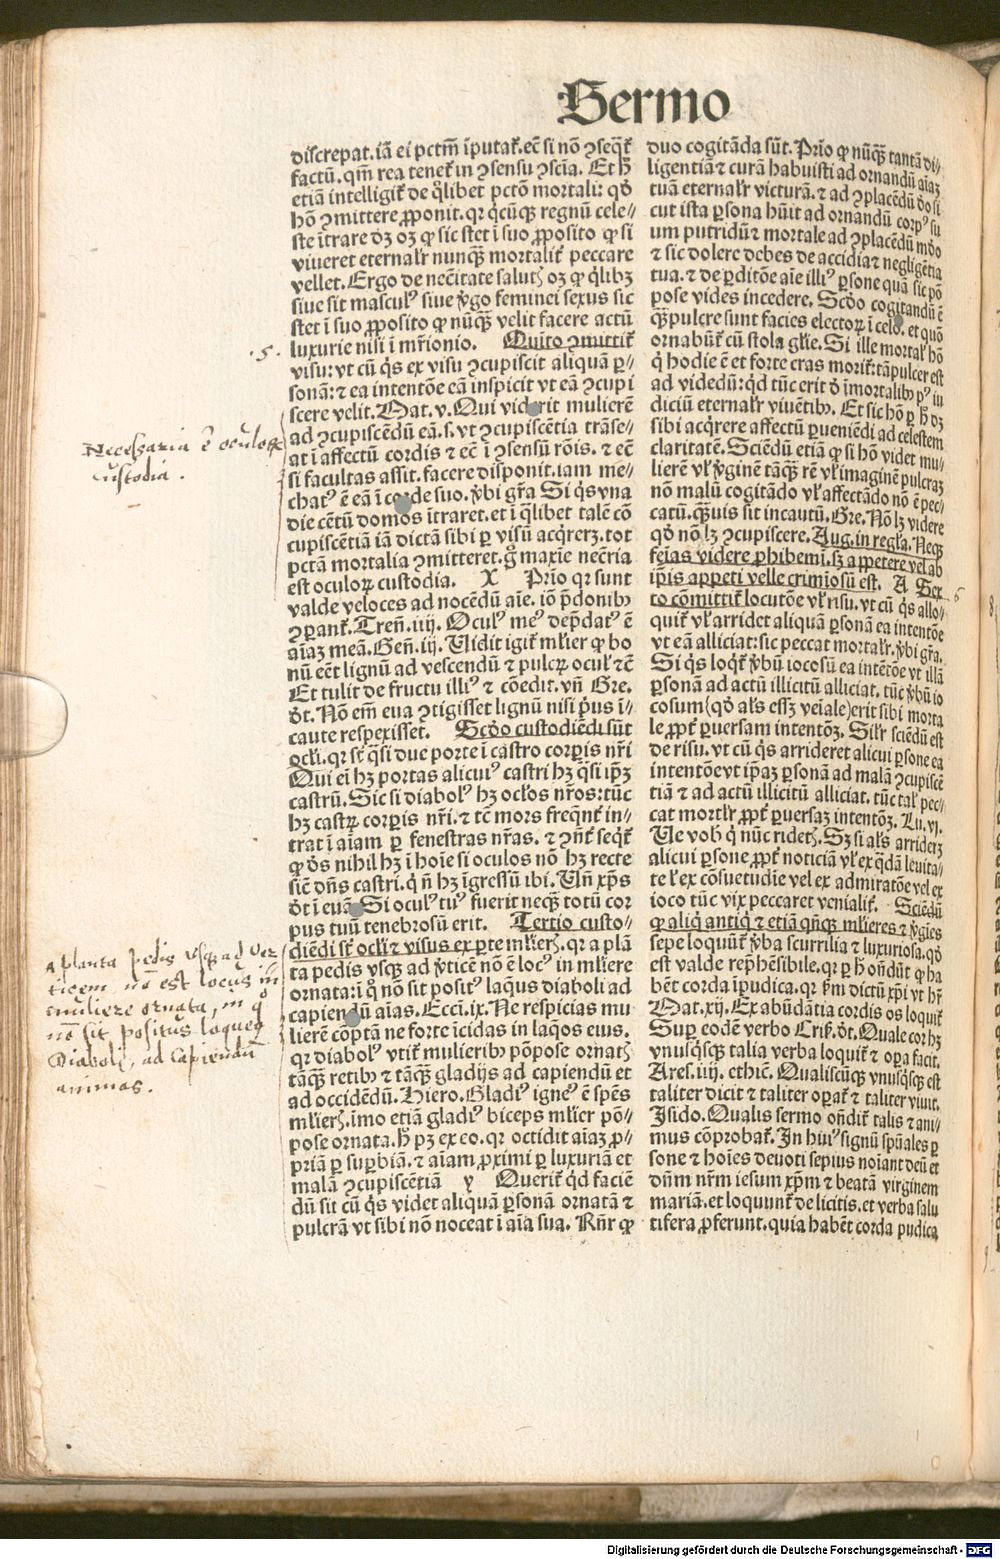 Sermo
discrepat. iā ei pctm̄ īputaƭ. ec̄ si nō ꝯseqƭ
factū. qm̄ rea teneƭ in ꝯsensu ꝯscīa. Et h̄
etiā intelligiƭ de qͥlibet pctō mortali: qͦ
hō ꝯmittere ꝓponit. qꝛ qͥcūqꝫ regnū cele⸗
ste ītrare ꝺꝫ oꝫ ꝙ sic stet ī suo ꝓposito ꝙ si
viueret eternalr̄ nunqꝫ mortaliƭ peccare
vellet. Ergo de nec̄itate saluꝭ oꝫ ꝙ qͥlibꝫ
siue sit masculꝰ siue v̄go feminei sexus sic
stet ī suo ꝓposito ꝙ nūqꝫ velit facere actū
luxurie nisi ī mr̄ionio. Quīto ꝯmittiƭ
visu: vt cū qͥs ex visu ꝯcupiscit aliquā ꝑ⸗
sonā: ⁊ ea intentōe eā inspicit vt eā ꝯcupi
scere velit. Mat. v. Qui viderit mulierē
ad ꝯcupiscēdū eā. s. vt ꝯcupiscētia trāse⸗
at ī affectū cordis ⁊ ec̄ ī ꝯsensū rōis. ⁊ ec̄
si facultas assit. facere disponit. iam me⸗
chatꝰ ē eā ī corde suo. v̄bi gr̄a Si qͥs vna
die cētū domos ītraret. et ī qͥlibet talē cō
cupiscētiā iā dictā sibi ꝑ visū acqͥrerꝫ. tot
pctā mortalia ꝯmitteret. gͦ maxīe nec̄ria
est oculoꝝ custodia. X Prīo qꝛ sunt
valde veloces ad nocēdū aīe. iō p̄donibꝫ
ꝯꝑanƭ. Tren̄. iij. Oculꝰ meꝰ dep̄datꝰ ē
aīaꝫ meā. Gen̄. iij. Uidit igiƭ ml̄ier ꝙ bo
nū eēt lignū ad vescendū ⁊ pulcꝝ ocul̄ ⁊c̄
Et tulit de fructu illiꝰ ⁊ cōedit. vn̄ Gre.
ꝺt. Nō em̄ eua ꝯtigisset lignū nisi pͥus ī⸗
caute respexisset. Scꝺo custodiēdi sūt
ocl̄i. qꝛ st̄ qͣsi due porte ī castro corꝑis nr̄i
Qui ei hꝫ portas alicuiꝰ castri hꝫ qͣsi ip̄ꝫ
castrū. Sic si diabolꝰ hꝫ ocl̄os nr̄os: tūc
hꝫ castꝝ corꝑis nr̄i. ⁊ tc̄ mors freqn̄ƭ in⸗
trat ī aīam ꝑ fenestras nr̄as. ⁊ ꝯn̄ƭ seqƭ
ꝙ ꝺs nihil hꝫ ī hoīe si oculos nō hꝫ recte
sic̄ dn̄s castri. qͥ n̄ hꝫ īgressū ibi. Un̄ xp̄s
ꝺt ī euā. Si oculꝰ tuꝰ fuerit neqꝫ totū cor
pus tuū tenebrosū erit. Tertio custo⸗
diēdi st̄ ocl̄i ⁊ visus ex ꝑte ml̄ieꝝ. qꝛ a plā
ta pedis vsqꝫ ad v̄ticē nō ē locꝰ in ml̄iere
ornata: ī qͦ nō sit positꝰ laqus diaboli ad
capiendū aīas. Ecci. ix. Ne respicias mu
lierē cōptā ne forte īcidas in laqͦs eius.
qꝛ diabolꝰ vtiƭ mulieribꝫ pōpose ornaꝭ
tāqꝫ retibꝫ ⁊ tāqꝫ gladijs ad capiendū et
ad occidēdū. Hiero. Gladiꝰ igneꝰ ē spēs
ml̄ieꝝ. īmo etiā gladiꝰ biceps ml̄ier pō⸗
pose ornata. h̄ pꝫ ex eo. qꝛ occidit aīaꝫ ꝓ⸗
priā ꝑ suꝑbiā. ⁊ aīam ꝓximi ꝑ luxuriā et
malā ꝯcupiscētiā y Queriƭ qͥd faciē
dū sit cū qͥs videt aliquā ꝑsonā ornatā ⁊
pulcrā vt sibi nō noceat ī aīa sua. Rn̄r ꝙ
duo cogitāda sūt. Prīo ꝙ nūqꝫ tantā di⸗
ligentiā ⁊ curā habuisti ad ornandū aīaꝫ
tuā eternalr̄ victurā. ⁊ ad ꝯplacēdū ꝺo si
cut ista ꝑsona hūit ad ornandū corpꝰ su
um putridū ⁊ mortale ad ꝯplacēdū mūdo
⁊ sic dolere debes de accidia ⁊ negligētia
tua. ⁊ de ꝑditōe aīe illiꝰ ꝑsone quā sic pō
pose vides incedere. Scꝺo cogitandū ē
qꝫ pulcre sunt facies electoꝝ ī celo. et quō
ornabūƭ cū stola gl̄ie. Si ille mortal̄ hō
qͥ hodie ē et forte cras morīƭ: tā pulcer est
ad videdū: qͥd tūc erit ꝺ īmortalibꝫ pꝰ iu
diciū eternalr̄ viuētibꝫ. Et sic hō ꝑ h̄ ꝺꝫ
sibi acqͥrere affectū ꝑueniēdi ad celestem
claritatē. Sciēdū etiā ꝙ si hō videt mu⸗
lierē vl̄ v̄ginē tāqꝫ rē vl̄ imaginē pulcraꝫ
nō malū cogitādo vl̄ affectādo nō ē pec⸗
catū. qꝫuis sit incautū. Gre. Nō lꝫ videre
qͦ nō lꝫ ꝯcupiscere. Aug. in regl̄a. Neqꝫ
feīas videre ꝓhibemī. sꝫ appetere vel ab
ip̄is appeti velle crimīosū est. A Sex
to cōmittiƭ locutōe vl̄ risu. vt cū qͥs allo⸗
quiƭ vl̄ arridet aliquam ꝑsonā ea intentōe
vt eā alliciat: sic peccat mortalr̄. v̄bi gr̄a.
Si qͥs loqƭ v̄bū iocosū ea intētōe vt illā
ꝑsonā ad actū illicitū alliciat. tūc v̄bū io
cosum (qͦ al̄s essꝫ veīale) erit sibi morta
le ꝓpƭ ꝑuersam intentōꝫ. Silr̄ sciēdū est
de risu. vt cū qͥs arrideret alicui ꝑsone ea
intentōe vt ip̄aꝫ ꝑsonā ad malā ꝯcupiscē
tiā ⁊ ad actū illicitū alliciat. tūc tal̄ pec⸗
cat mortl̄r ꝓpƭ ꝑuersaꝫ intentōꝫ. Lu. vi.
Ue vob̄ qͥ nūc rideꝭ. Sꝫ si al̄s arriderꝫ
alicui ꝑsone. ꝓpƭ noticiā vl̄ ex qͣdā leuita⸗
te l̄ ex cōsuetudīe vel ex admiratōe vel ex
ioco tūc vix peccaret venialiƭ. Sciēdū
ꝙ aliqͥ antiqͥ ⁊ etiā qn̄qꝫ ml̄ieres ⁊ v̄gīes
sepe loquūƭ v̄ba scurrilia ⁊ luxuriosa. qͦ
est valde rep̄hēsibile. qꝛ ꝑ h̄ on̄dūt ꝙ ha
bēt corda īpudica. qꝛ ẜm dictū xp̄i vt hr̄
Mat. xij. Ex abūdātia cordis os loquiƭ
Suꝑ eodē verbo Crisͦ. ꝺt. Quale cor hꝫ
vnusqͥsqꝫ talia verba loquiƭ ⁊ oꝑa facit.
Ares. iiij. ethic̄. Qualiscūqꝫ vnusqͥsqꝫ est
taliter dicit ⁊ taliter oꝑaƭ ⁊ taliter viuit.
Isido. Qualis sermo on̄diƭ talis ⁊ ani⸗
mus cōprobaƭ. In huiꝰ signū spūales ꝑ
sone ⁊ hoīes deuoti sepius noīant deū et
dn̄m nr̄m iesum xp̄m ⁊ beatā virginem
mariā. et loquunƭ de licitis. et verba salu
tifera ꝓferunt. quia habēt corda pudica
.5.
Necessaria ē oculoꝝ
custodia.
a planta pedis vsqꝫ ad ver
ticem, nō est locus in
muliere ornata, in qͦ
nō sit positus laqueꝰ
Diaboli, ad capiendū
animas.
6
Digitalisierung gefördert durch die Deutsche Forschungsgemeinschaft - DFG